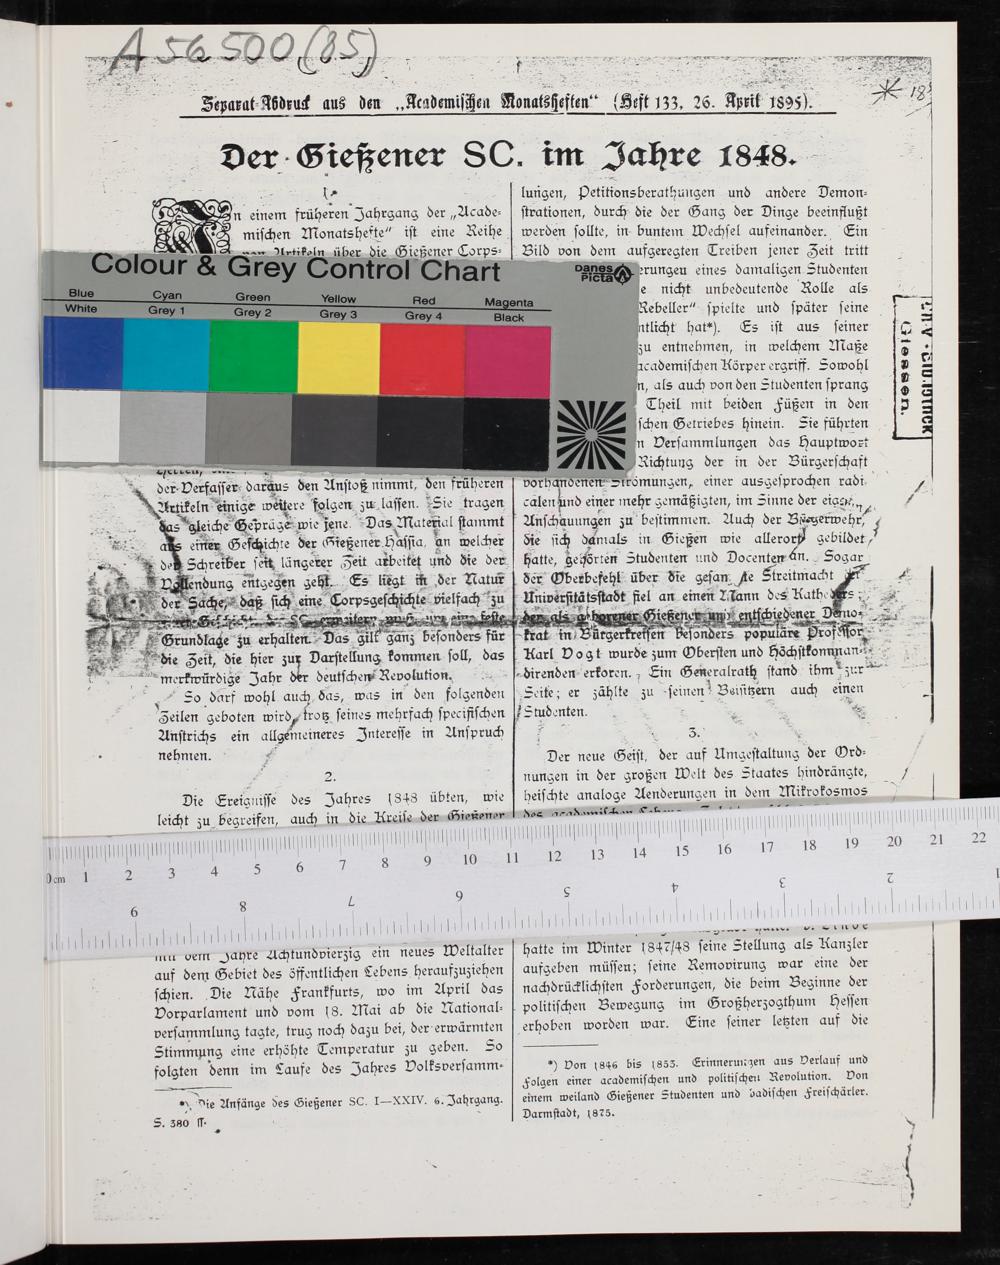 A 56 500 (85)
Separat-Abdruck aus den „Academischen Monatsheften“ (Heft 133, 26. April 1895).
* 18
Der Gießener SC. im Jahre 1848.
1.
In einem früheren Jahrgang der „Acade-
mischen Monatshefte“ ist eine Reihe
von Artikeln über die Gießener Corps-
Colour & Grey Control Chart
Danes Picta
Blue Cyan Green Yellow Red Magenta
White Grey 1 Grey 2 Grey 3 Grey 4 Black
der Verfasser daraus den Anstoß nimmt, den früheren
Artikeln einige weitere folgen zu lassen. Sie tragen
das gleiche Gepräge wie jene. Das Material stammt
aus einer Geschichte der Gießener Hassia, an welcher
der Schreiber seit längerer Zeit arbeitet und die der
Vollendung entgegen geht. Es liegt in der Natur
der Sache, daß sich eine Corpsgeschichte vielfach zu
einer Geschichte des SC. erweitern muß, um eine feste
Grundlage zu erhalten. Das gilt ganz besonders für
die Zeit, die hier zur Darstellung kommen soll, das
merkwürdige Jahr der deutschen Revolution.
So darf wohl auch das, was in den folgenden
Zeilen geboten wird, trotz seines mehrfach specifischen
Anstrichs ein allgemeineres Interesse in Anspruch
nehmen.
2.
Die Ereignisse des Jahres 1848 übten, wie
leicht zu begreifen, auch in die Kreise der Gießener
0 cm 1 2 3 4 5 6 7 8 9 10 11 12 13 14 15 16 17 18 19 20 21 22
9 8 7 6 5 4 3 2 1
mit dem Jahre Achtundvierzig ein neues Weltalter
auf dem Gebiet des öffentlichen Lebens heraufzuziehen
schien. Die Nähe Frankfurts, wo im April das
Vorparlament und vom 18. Mai ab die National-
versammlung tagte, trug noch dazu bei, der erwärmten
Stimmung eine erhöhte Temperatur zu geben. So
folgten denn im Laufe des Jahres Volksversamm-
*) Die Anfänge des Gießener SC. I—XXIV. 6. Jahrgang.
S. 380 ff.
lungen, Petitionsberathungen und andere Demon-
strationen, durch die der Gang der Dinge beeinflußt
werden sollte, in buntem Wechsel aufeinander. Ein
Bild von dem aufgeregten Treiben jener Zeit tritt
eines damaligen Studenten
nicht unbedeutende Rolle als
Rebeller“ spielte und später seine
hat*). Es ist aus seiner
zu entnehmen, in welchem Maße
academischen Körper ergriff. Sowohl
als auch von den Studenten sprang
Theil mit beiden Füßen in den
Getriebes hinein. Sie führten
Versammlungen das Hauptwort
Richtung der in der Bürgerschaft
vorhandenen Strömungen, einer ausgesprochen radi
calen und einer mehr gemäßigten, im Sinne der eigenen
Anschauungen zu bestimmen. Auch der Bürgerwehr,
die sich damals in Gießen wie allerort gebildet
hatte, gehörten Studenten und Docenten an. Sogar
der Oberbefehl über die gesamte Streitmacht der
Universitätsstadt fiel an einen Mann des Katheders;
der als geborener Gießener und entschiedener Demo-
krat in Bürgerkreisen besonders populäre Professor
Karl Vogt wurde zum Obersten und Höchstkomman-
direnden erkoren. Ein Generalrath stand ihm zur
Seite; er zählte zu seinen Beisitzern auch einen
Studenten.
3.
Der neue Geist, der auf Umgestaltung der Ord-
nungen in der großen Welt des Staates hindrängte,
heischte analoge Aenderungen in dem Mikrokosmos
des academischen Lebens.
hatte im Winter 1847/48 seine Stellung als Kanzler
aufgeben müssen; seine Removirung war eine der
nachdrücklichsten Forderungen, die beim Beginne der
politischen Bewegung im Großherzogthum Hessen
erhoben worden war. Eine seiner letzten auf die
*) Von 1846 bis 1853. Erinnerungen aus Verlauf und
Folgen einer academischen und politischen Revolution. Von
einem weiland Gießener Studenten und badischen Freischärler.
Darmstadt, 1875.
Giessen.